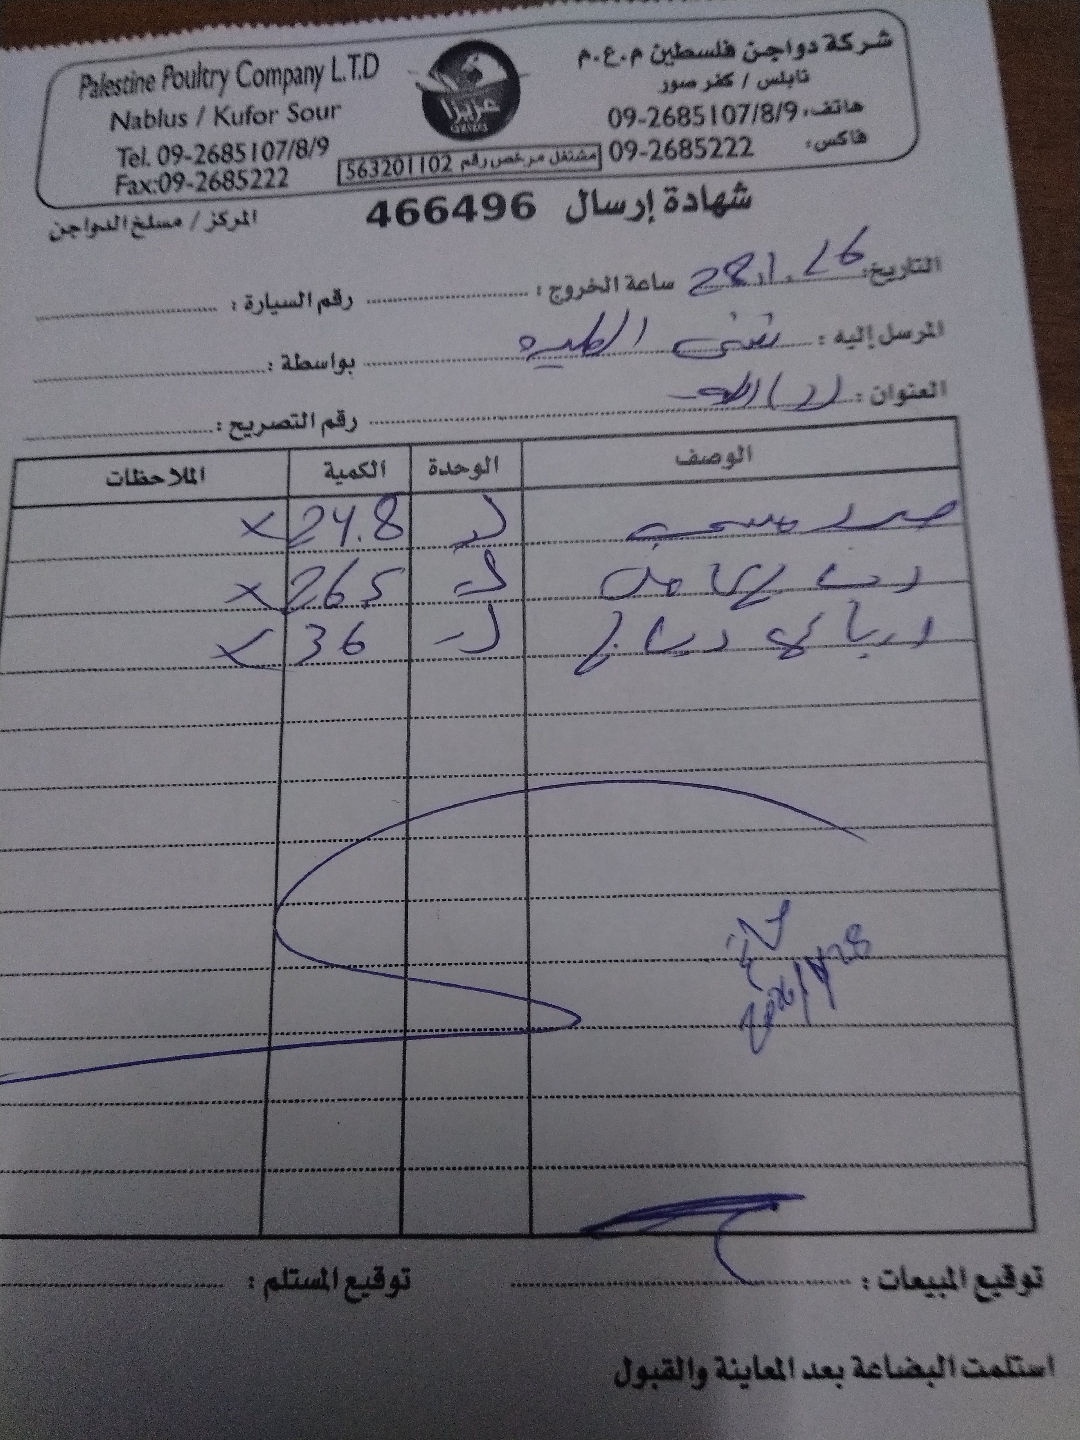 Palestine Poultry Company L.T.D
Nablus / Kufor Sour
Tel. 09-2685107/8/9
Fax:09-2685222
عزيزا
شركة دواجن فلسطين م.ع.م
نابلس / كفر صور
هاتف: 09-2685107/8/9
فاكس: 09-2685222
مشتغل مرخص رقم 563201102
شهادة إرسال 466496
المركز / مسلخ الدواجن
التاريخ: 28.1.26 ساعة الخروج: رقم السيارة:
المرسل إليه: بواسطة:
العنوان: رقم التصريح:
الوصف الوحدة الكمية الملاحظات
صدر 24.8 ×
265 ×
دجاج 36 ×
توقيع المبيعات: توقيع المستلم:
استلمت البضاعة بعد المعاينة والقبول